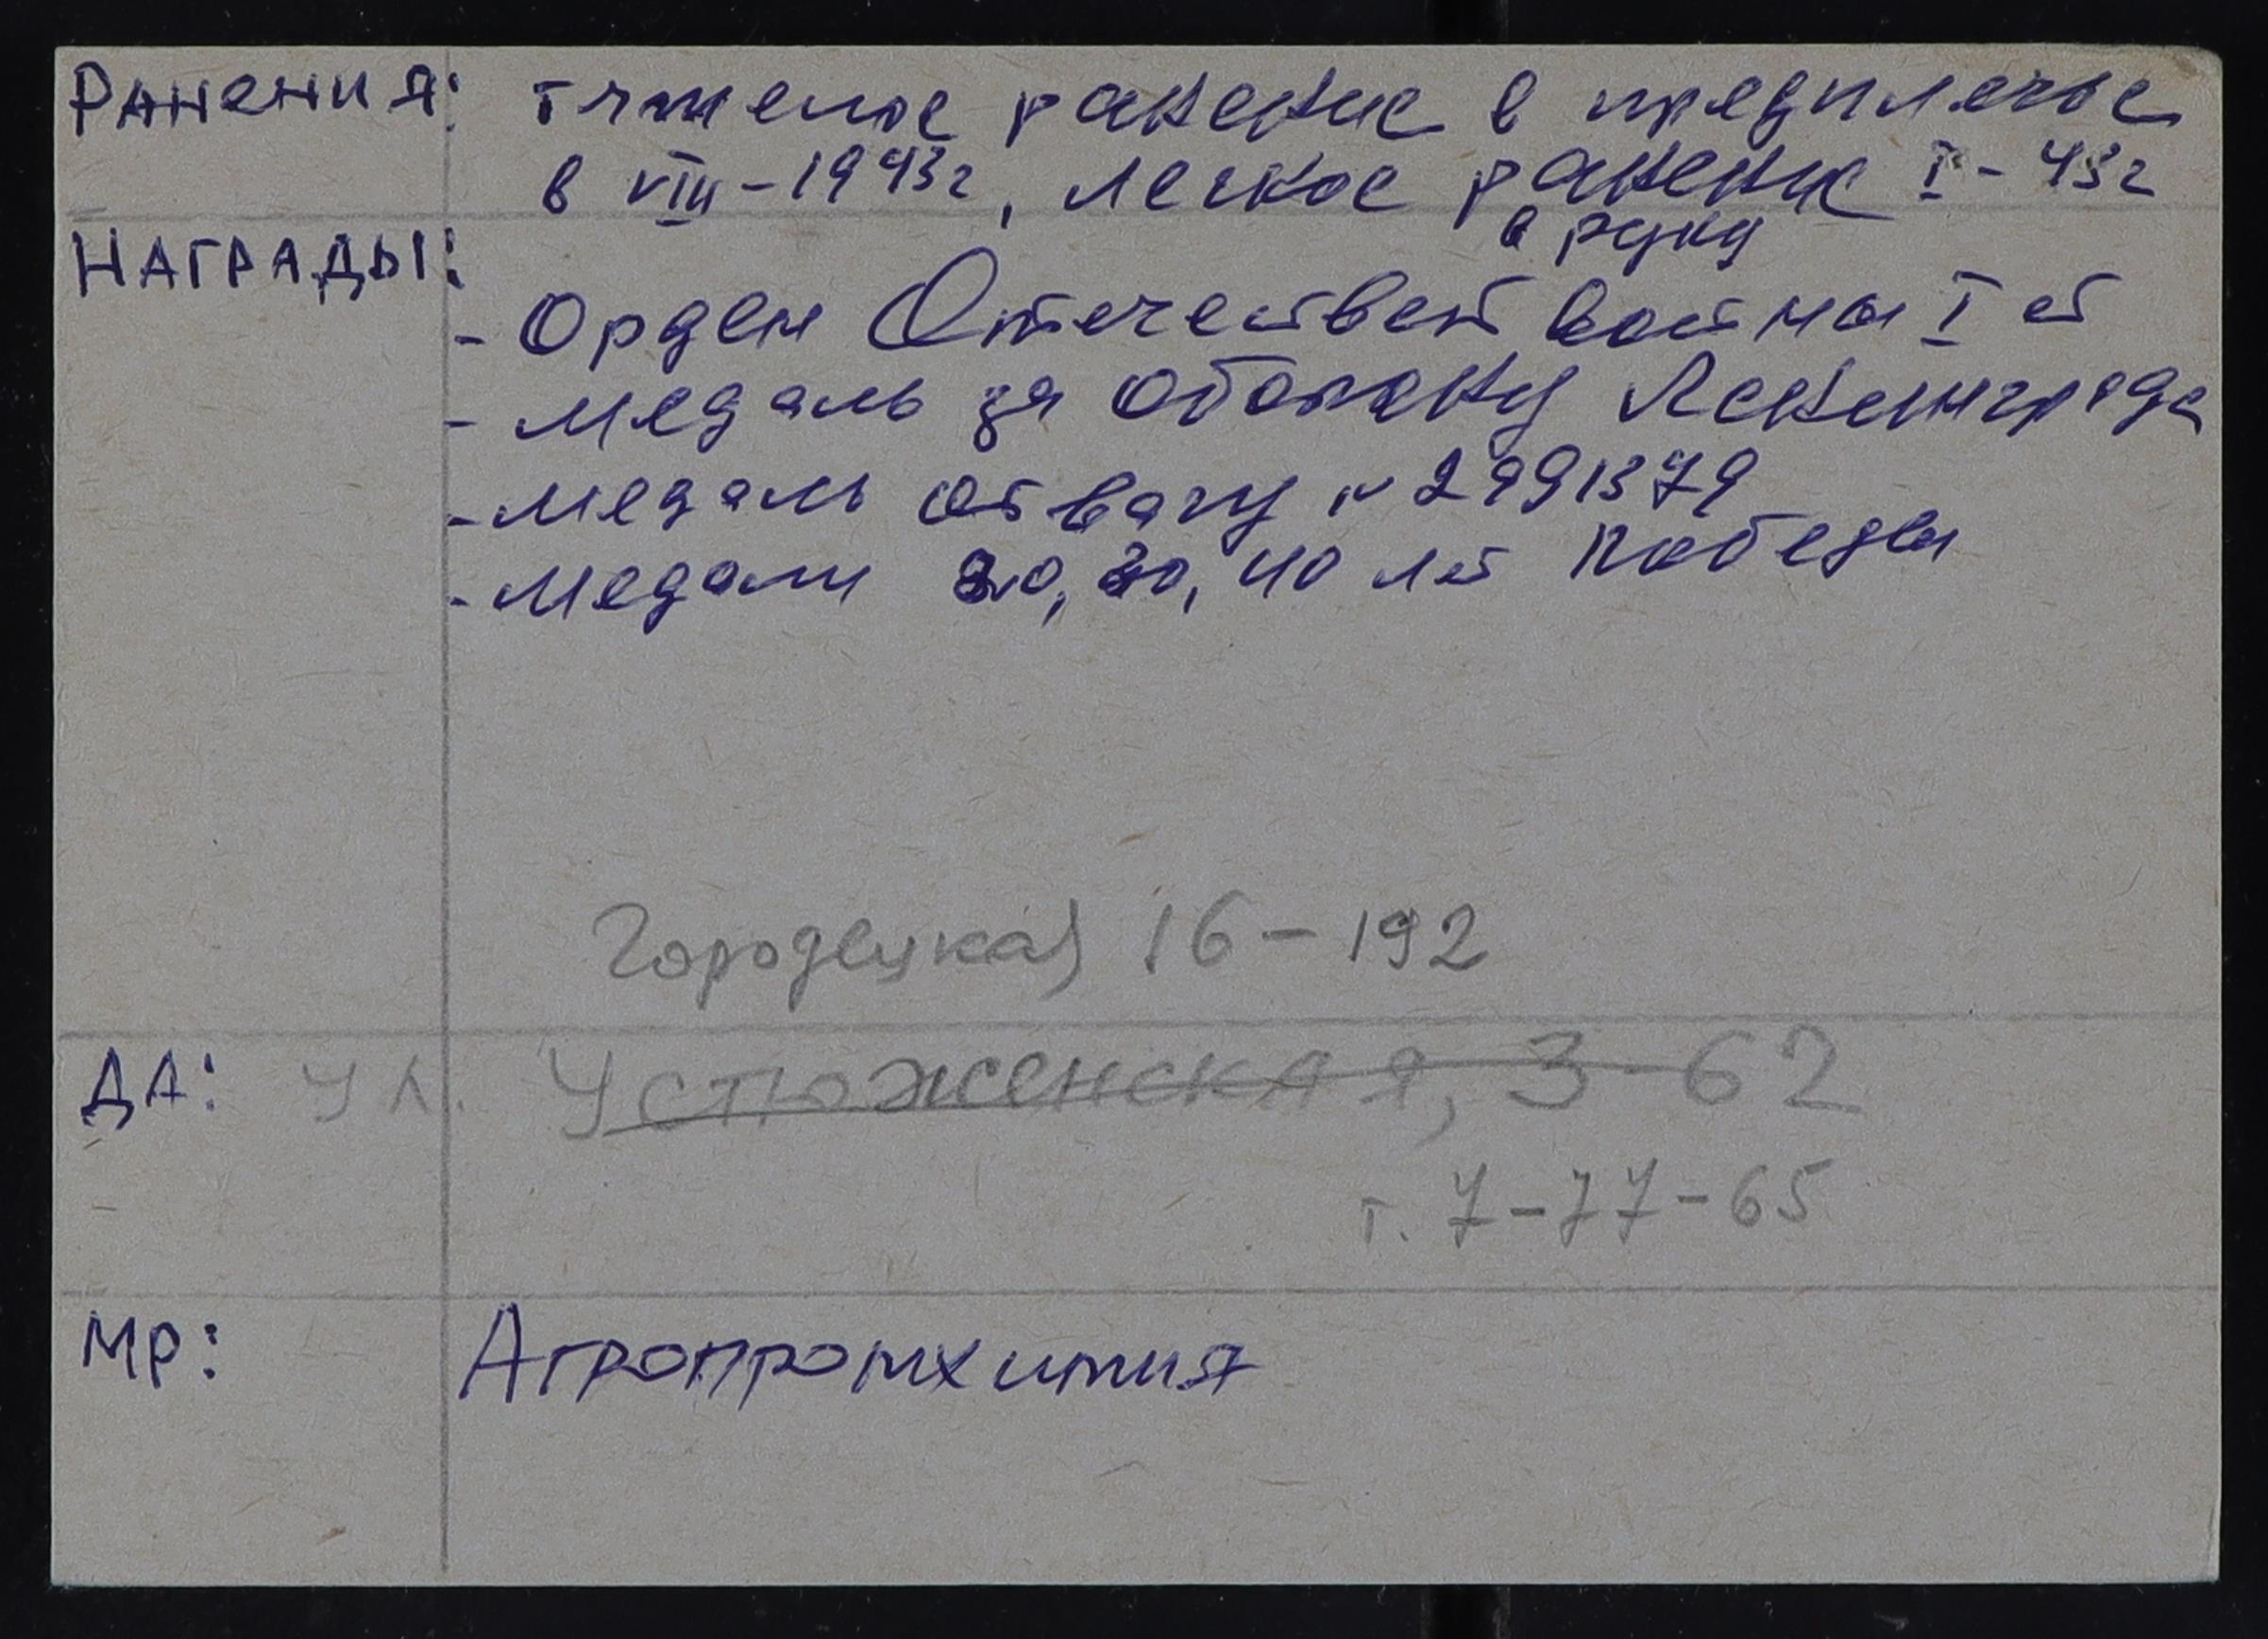 Ранения: тяжелое ранение в предплечье
в VIII-1943г, легкое ранение I-43г
в руку
Награды:
- Орден Отечествен войны I ст
- медаль за оборону Ленинграда
- медаль отвагу № 2991379
- медали 20, 30, 40 лет Победы
Городецкая 16-192
ДА: ул. Устюженская, 3-62
т. 7-77-65
МР: Агропромхимия